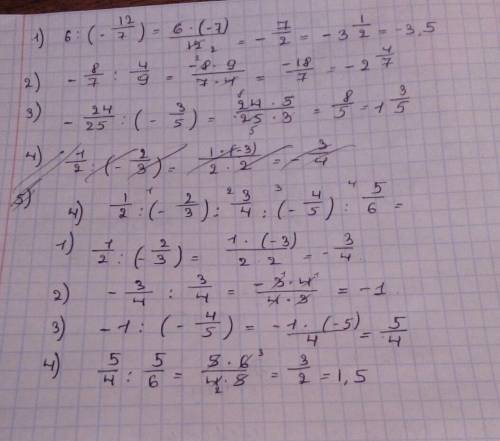 1) 6 : (- 12/7) = 6 · (-7)/12 2 = - 7/2 = - 3 1/2 = - 3,5
2) - 8/7 : 4/9 = -8 · 9/7 · 4 = -18/7 = - 2 4/7
3) - 24/25 : (- 3/5) = 24 · 5/25 · 3 = 8/5 = 1 3/5
4) 1/2 : (- 2/3) = 1 · (-3)/2 · 2 = - 3/4
5)
4) 1/2 :1 (- 2/3) :2 3/4 :3 (- 4/5) :4 5/6 =
1) 1/2 : (- 2/3) = 1 · (-3)/2 · 2 = - 3/4
2) - 3/4 : 3/4 = - 3 · 4/4 · 3 = - 1
3) - 1 : (- 4/5) = - 1 · (-5)/4 = 5/4
4) 5/4 : 5/6 = 5 · 6 3/4 2 · 5 = 3/2 = 1,5